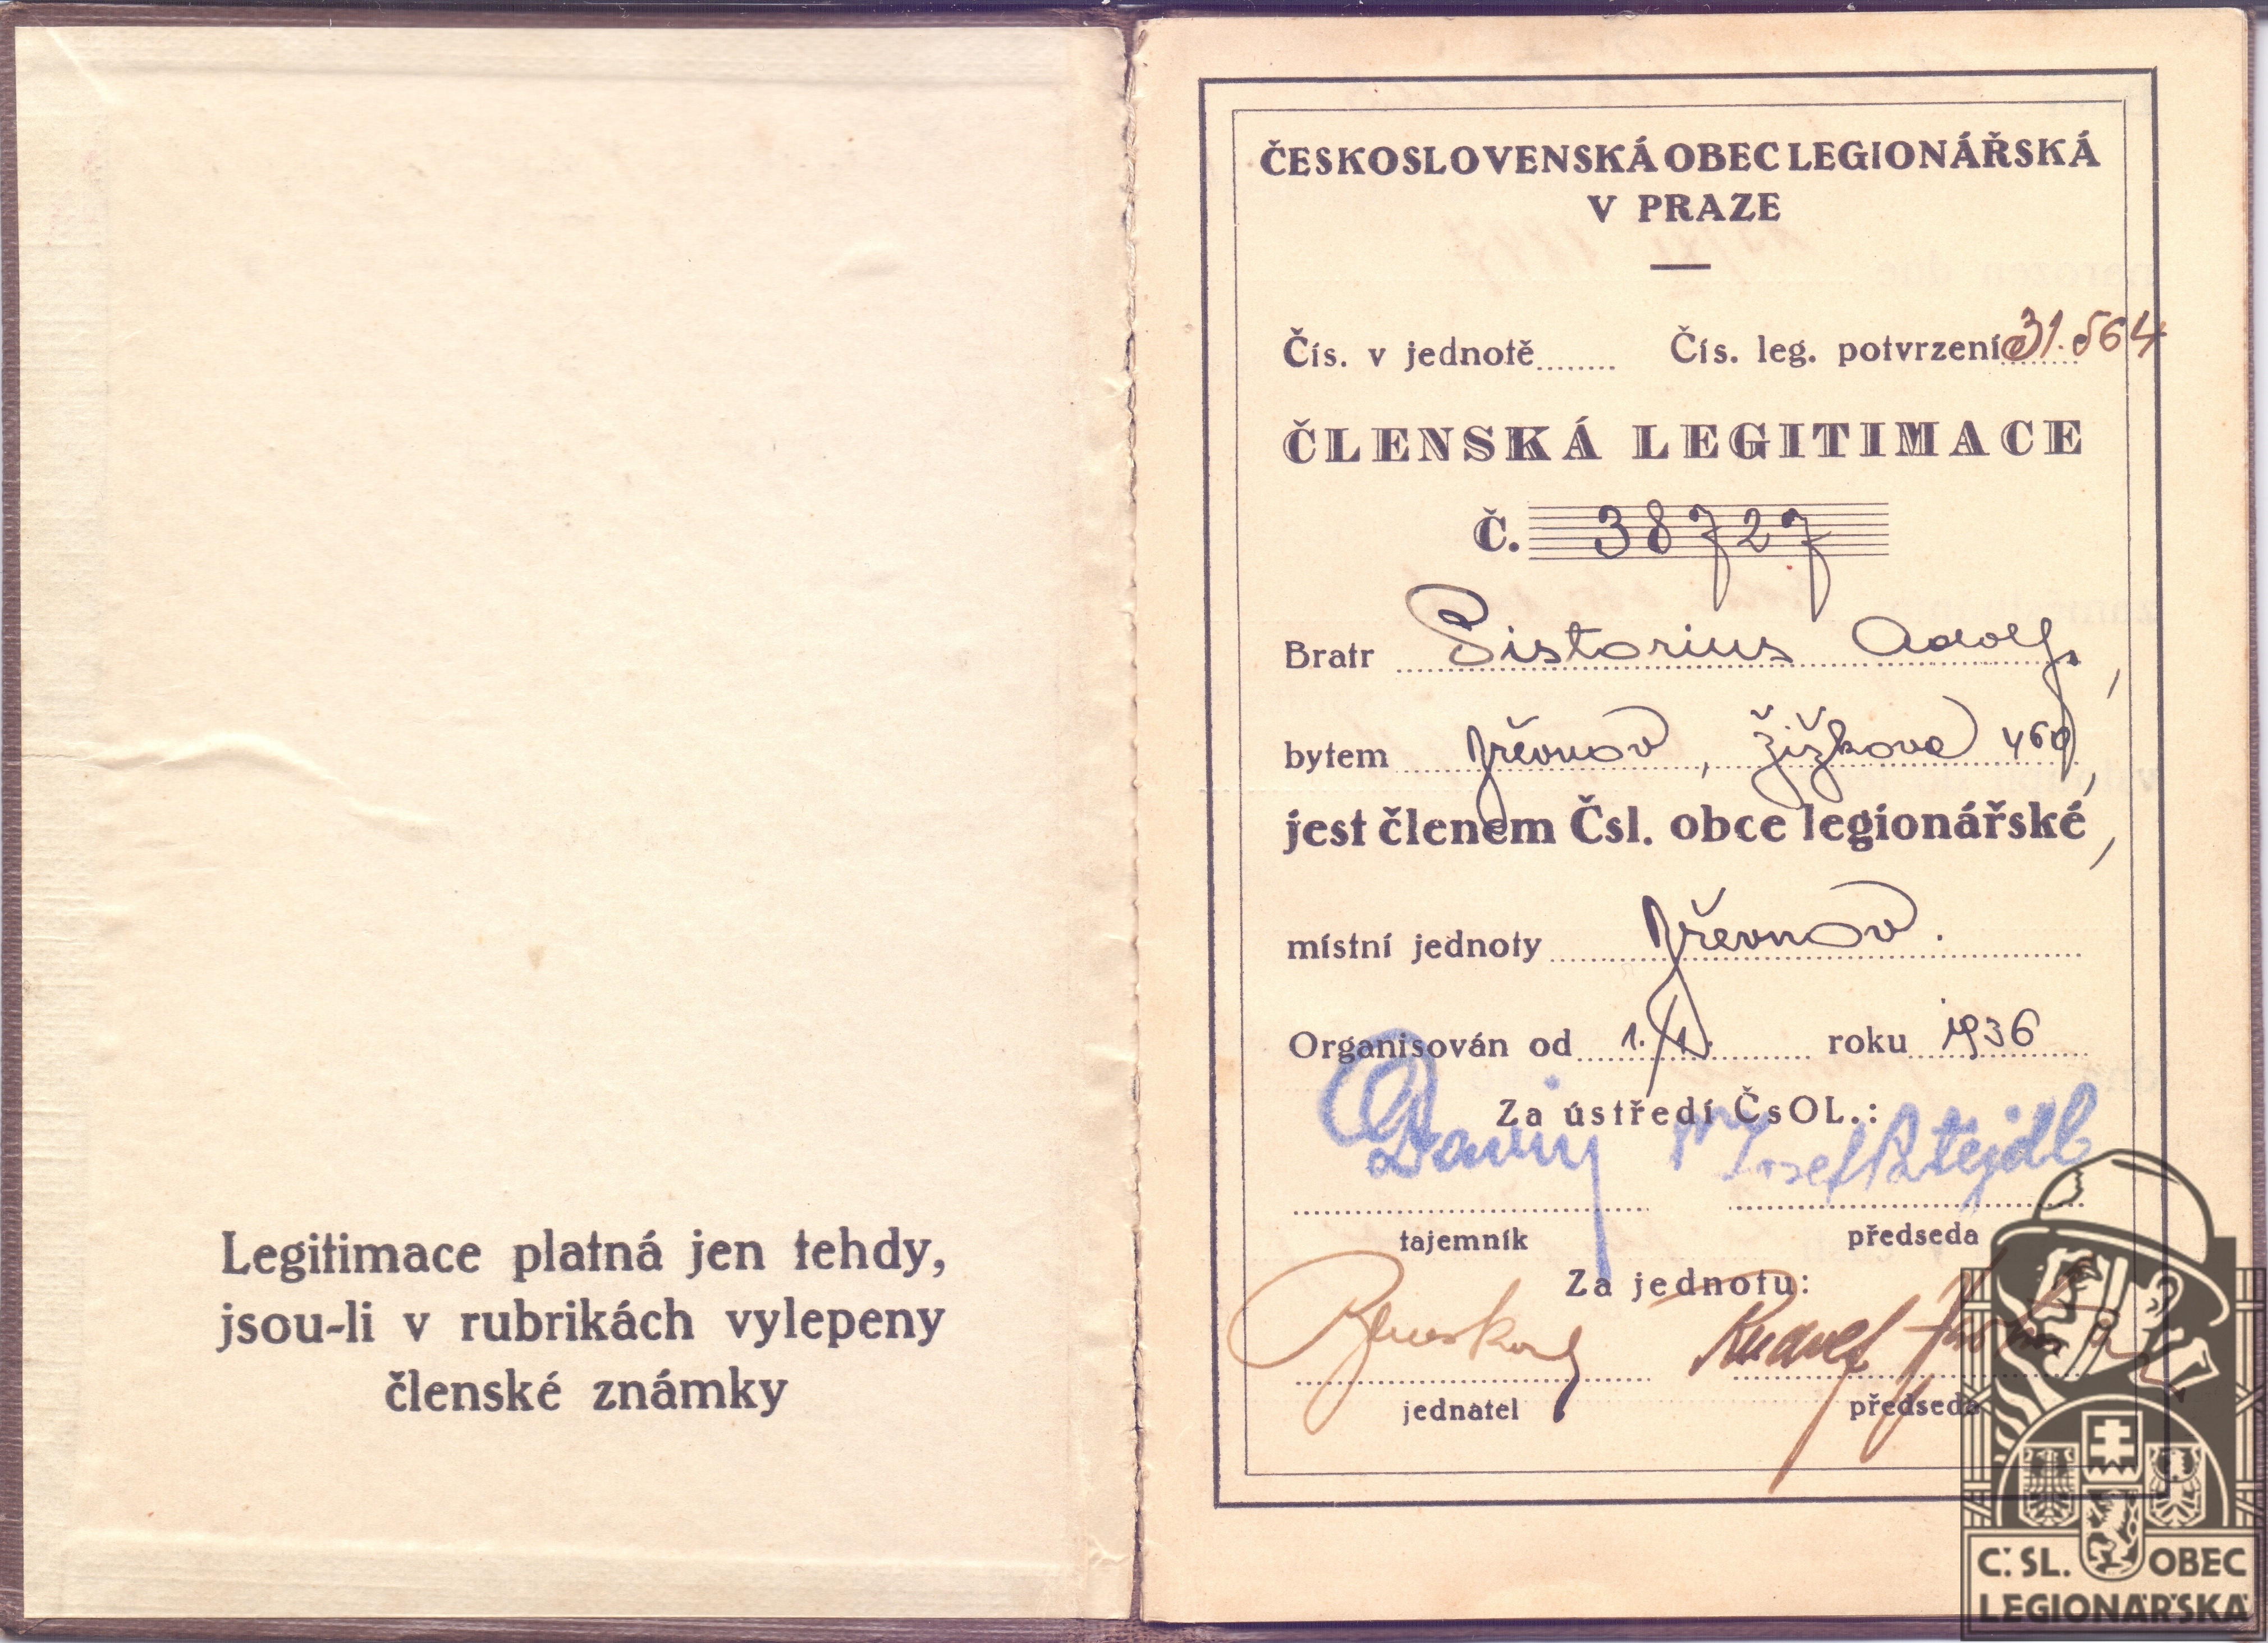 Legitimace platná jen tehdy,
jsou-li v rubrikách vylepeny
členské známky
ČESKOSLOVENSKÁ OBEC LEGIONÁŘSKÁ
V PRAZE
Čís. v jednotě........ Čís. leg. potvrzení 31.564
ČLENSKÁ LEGITIMACE
Č. 38727
Bratr Pistorius Adolf,
bytem Břevnov, Žižkova 460,
jest členem Čsl. obce legionářské,
místní jednoty Břevnov.
Organisován od roku 1936
Za ústředí ČsOL.:
tajemník předseda
Za jednotu:
Rudolf
jednatel předseda
Č.SL. OBEC
LEGIONÁŘSKÁ